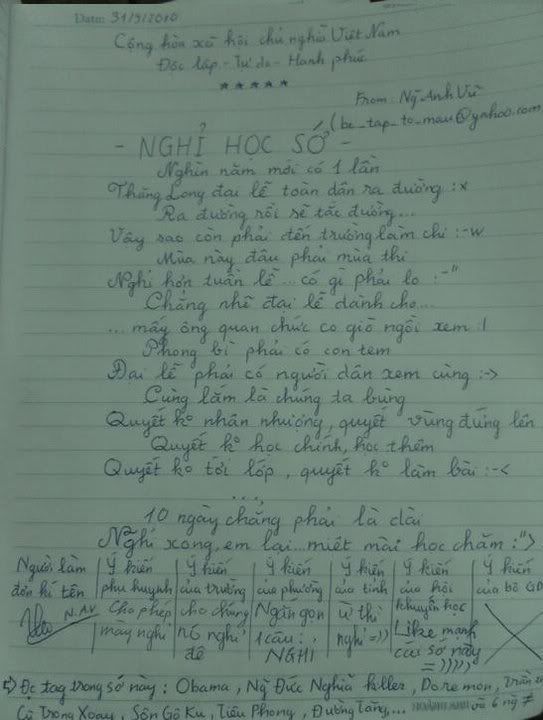 Date: 31/9/2010
Cộng hòa xã hội chủ nghĩa Việt Nam
Độc lập - Tự do - Hạnh phúc
★ ★ ★ ★ ★
From: Ng̃ Anh Vũ
(be_tap_to_mau@yahoo.com
- NGHỈ HỌC SỚ -
Nghìn năm mới có 1 lần
Thăng Long đại lễ toàn dân ra đường :x
Ra đường rồi sẽ tắc đường...
Vậy sao còn phải đến trường làm chi :-w
Mùa này đâu phải mùa thi
Nghỉ hơn tuần lễ ... có gì phải lo :-"
Chẳng nhẽ đại lễ dành cho...
... mấy ông quan chức co giò ngồi xem :|
Phong bì phải có con tem
Đại lễ phải có người dân xem cùng :->
Cùng lắm là chúng ta bùng
Quyết k° nhân nhượng, quyết vùng đứng lên
Quyết k° học chính, học thêm
Quyết k° tới lớp, quyết k° làm bài :-<
...,
10 ngày chẳng phải là dài
Nghỉ xong, em lại... miệt mài học chăm :">
Người làm đơn kí tên N.AV
Ý kiến phụ huynh Cho phép mày nghỉ
Ý kiến của trường cho chúng nó nghỉ đê
Ý kiến của phường Ngắn gọn 1 câu: NGHỈ
Ý kiến của tỉnh Ừ thì nghỉ =))
Ý kiến của hội khuyến học Like mạnh cái sớ này =)))))
Ý kiến của bộ GD
Đc tag trong sớ này : Obama, Ng̃ Đức Nghĩa killer, Doremon, Trần
Cù Trọng Xoay, Sôn Gô Ku, Tiêu Phong, Đường Tăng,... và 6 ng ≠